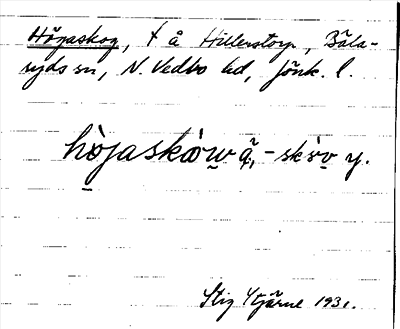 Höjaskog, t å Hillerstorp, Bäla-
ryds sn, N. Vedbo hd, Jönk. l.
hòjaskòw ä̃, -skòv y.
Stig Ytjärne 1931.